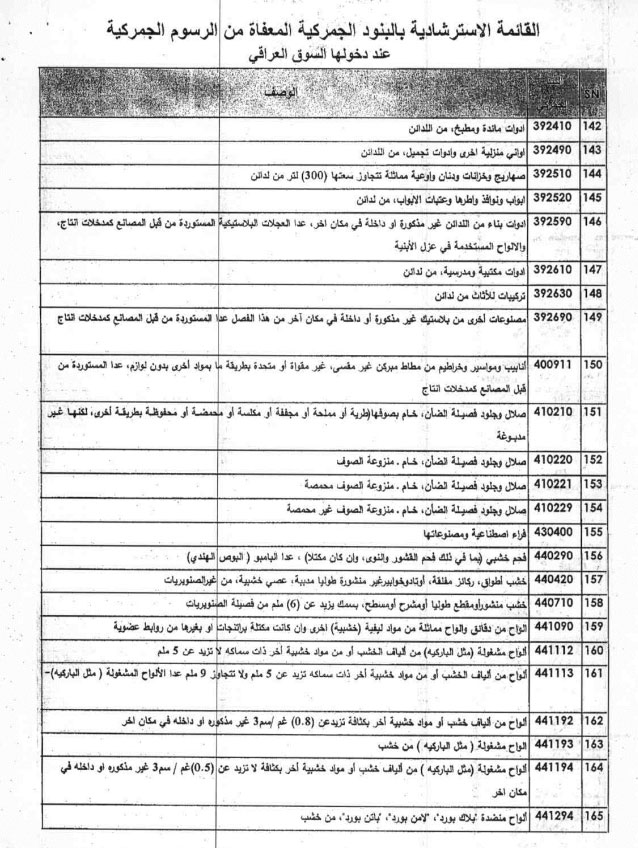 القائمة الاسترشادية بالبنود الجمركية المعفاة من الرسوم الجمركية
عند دخولها السوق العراقي
SN الوصف
142 392410 ادوات مائدة ومطبخ، من اللدائن
143 392490 اواني منزلية اخرى وادوات تجميل، من اللدائن
144 392510 صهاريج وخزانات ودنان واوعية مماثلة تتجاوز سعتها (300) لتر من لدائن
145 392520 ابواب ونوافذ واطرها وعتبات الابواب، من لدائن
146 392590 ادوات بناء من اللدائن غير مذكورة او داخلة في مكان اخر، عدا العجلات البلاستيكية المستوردة من قبل المصانع كمدخلات انتاج،
والالواح المستخدمة في عزل الأبنية
147 392610 ادوات مكتبية ومدرسية، من لدائن
148 392630 تركيبات للأثاث من لدائن
149 392690 مصنوعات أخرى من بلاستيك غير مذكورة أو داخلة في مكان آخر من هذا الفصل عدا المستوردة من قبل المصانع كمدخلات انتاج
150 400911 أنابيب ومواسير وخراطيم من مطاط مبركن غير مقسى، غير مقواة أو متحدة بطريقة ما بمواد أخرى بدون لوازم، عدا المستوردة من
قبل المصانع كمدخلات انتاج
151 410210 صلال وجلود فصيلة الضأن، خام بصوفها(طرية أو مملحة أو مجففة أو مكلسة أو محمضة أو محفوظة بطريقة أخرى، لكنها غير
مدبوغة
152 410220 صلال وجلود فصيلة الضأن، خام . منزوعة الصوف
153 410221 صلال وجلود فصيلة الضأن، خام . منزوعة الصوف محمصة
154 410229 صلال وجلود فصيلة الضأن، خام . منزوعة الصوف غير محمصة
155 430400 فراء اصطناعية ومصنوعاتها
156 440290 فحم خشبي (بما في ذلك فحم القشور والنوى، وان كان مكتلا) ، عدا البامبو ( البوص الهندي)
157 440420 خشب أطواق، ركائز مفلقة، أوتادوخوابيرغير منشورة طوليا مدببة، عصي خشبية، من غيرالصنوبريات
158 440710 خشب منشوراومقطع طوليا أومشرح أومسطح، بسمك يزيد عن (6) ملم من فصيلة الصنوبريات
159 441090 الواح من دقائق والواح مماثلة من مواد ليفية (خشبية) اخرى وان كانت مكتلة براتنجات او بغيرها من روابط عضوية
160 441112 ألواح مشغولة (مثل الباركيه) من ألياف الخشب أو من مواد خشبية أخر ذات سماكه لا تزيد عن 5 ملم
161 441113 ألواح من ألياف الخشب أو من مواد خشبية أخر ذات سماكه تزيد عن 5 ملم ولا تتجاوز 9 ملم عدا الألواح المشغولة ( مثل الباركيه)–
162 441192 ألواح من ألياف خشب أو مواد خشبية أخر بكثافة تزيدعن (0.8) غم /سم3 غير مذكوره او داخله في مكان اخر
163 441193 ألواح مشغولة ( مثل الباركيه ) من خشب
164 441194 ألواح مشغولة (مثل الباركيه ) من ألياف خشب أو مواد خشبية أخر بكثافة لا تزيد عن (0.5)غم / سم3 غير مذكوره او داخله في
مكان اخر
165 441294 ألواح منضدة "بلاك بورد"، "لامن بورد"، "باتن بورد"، من خشب